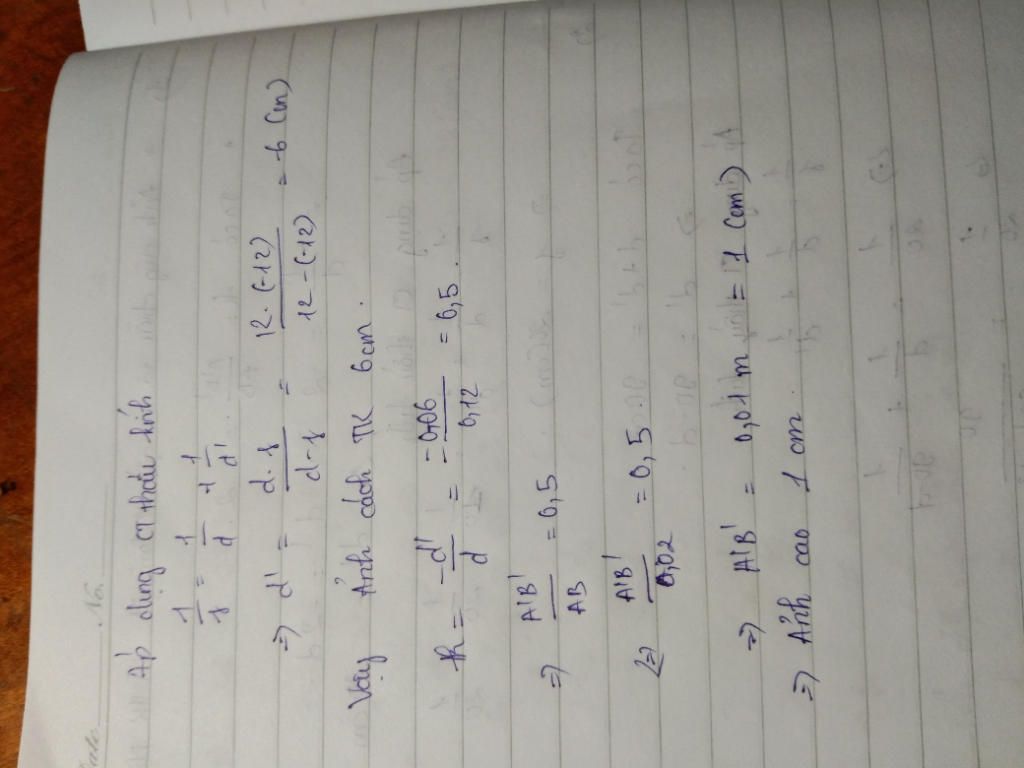 No.
Date
Áp dụng CT thấu kính
1/f = 1/d + 1/d'
=) d' = d.f/d-f = 12.(-12)/12-(-12) = -6 (cm)
Vậy Ảnh cách TK 6cm.
K = -d'/d = -0,06/0,12 = 0,5.
=) A'B'/AB = 0,5
(=) A'B'/0,02 = 0,5
=) A'B' = 0,01 m = 1 (cm)
=) Ảnh cao 1 cm.